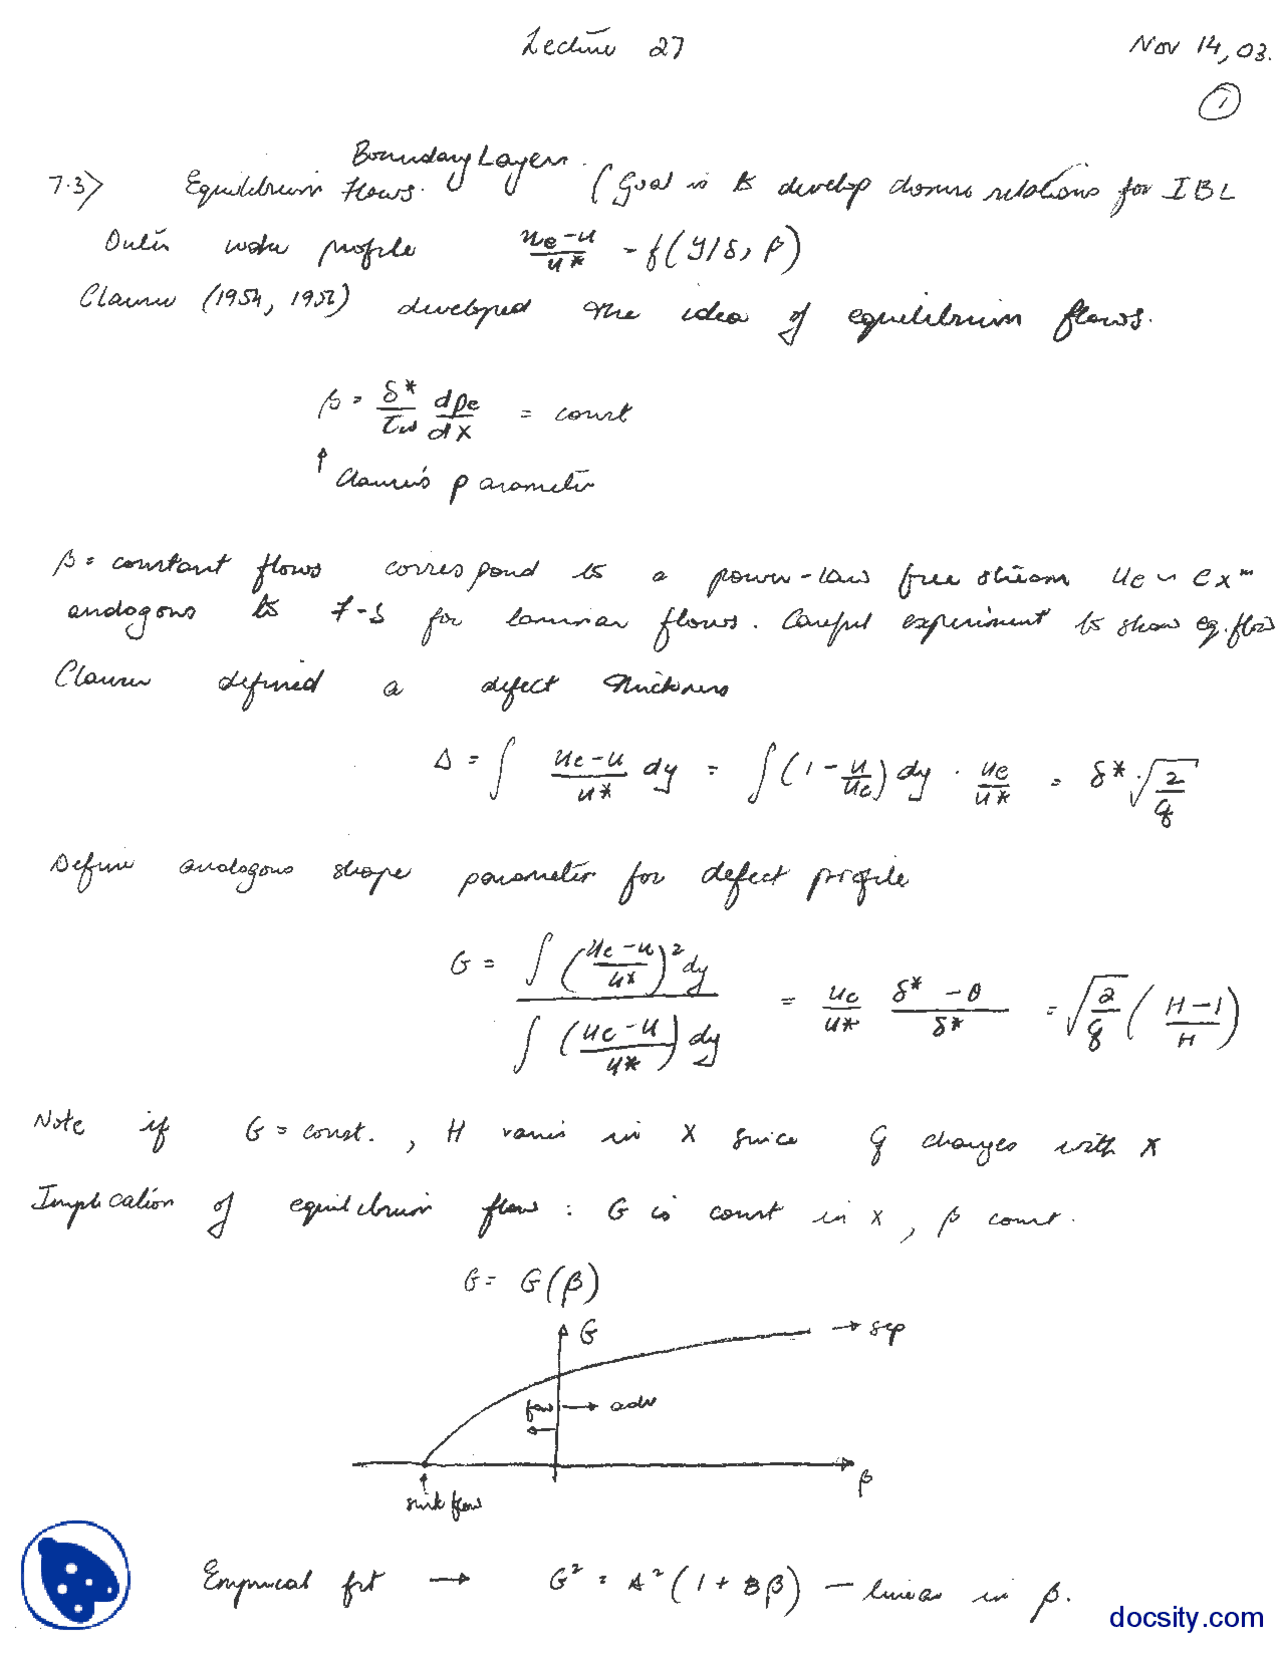 Lecture 27
Nov 14, 03.
1
Boundary Layers.
7.3) Equilibrium Flows. (Goal is to develop closure relations for IBL
Outer wake profile (ue-u)/u* = f(y/δ, β)
Clauser (1954, 1956) developed the idea of equilibrium flows.
β = δ*/τw dpe/dx = const
↑ Clauser's parameter
β = constant flows correspond to a power-law free stream ue ~ cx^m
analogous to F-S for laminar flows. Careful experiment to show eq. flow
Clauser defined a defect thickness
Δ = ∫ (ue-u)/u* dy = ∫(1 - u/ue) dy · ue/u* = δ* √(2/Cf)
Define analogous shape parameter for defect profile
G = ∫((ue-u)/u*)² dy / ∫((ue-u)/u*) dy = ue/u* (δ* - θ)/δ* = √(2/Cf) ((H-1)/H)
Note if G = const., H varies in x since Cf changes with x
Implication of equilibrium flow: G is const in x, β const.
G = G(β)
G → sep
fav → adv
←
β
↑
sink flow
Empirical fit → G² = A²(1 + Bβ) — linear in β.
docsity.com